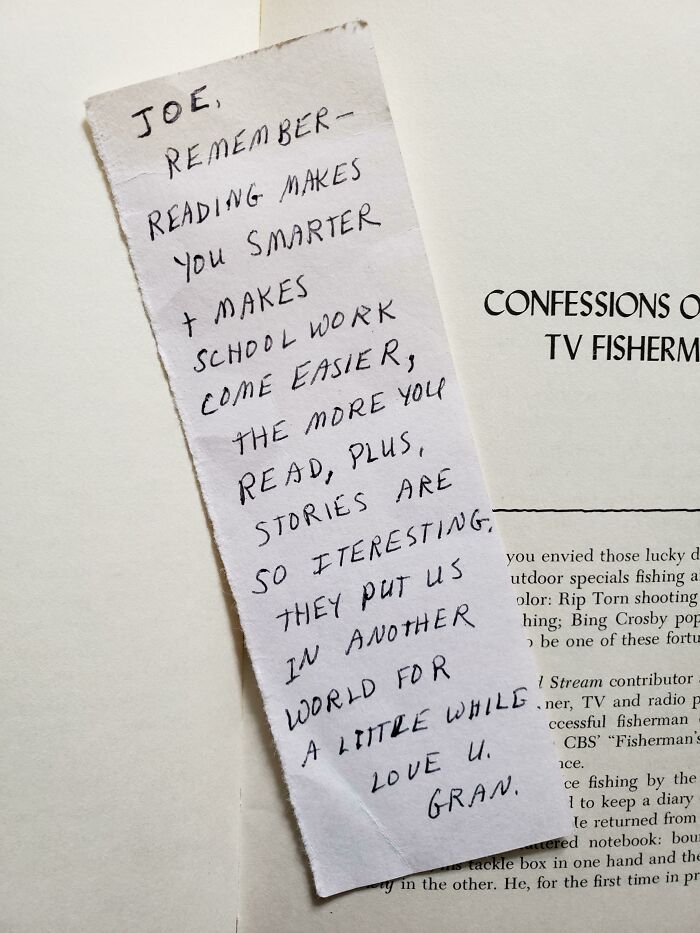 JOE,
REMEMBER—
READING MAKES
YOU SMARTER
+ MAKES
SCHOOL WORK
COME EASIER,
THE MORE YOU
READ, PLUS,
STORIES ARE
SO ITERESTING.
THEY PUT US
IN ANOTHER
WORLD FOR
A LITTLE WHILE
LOVE U.
GRAN.
CONFESSIONS O
TV FISHERM
you envied those lucky d
utdoor specials fishing a
olor: Rip Torn shooting
hing; Bing Crosby pop
be one of these fortu
Stream contributor
ner, TV and radio p
ccessful fisherman
CBS' "Fisherman's
nce.
ce fishing by the
to keep a diary
He returned from
ttered notebook: bou
his tackle box in one hand and the
in the other. He, for the first time in pr